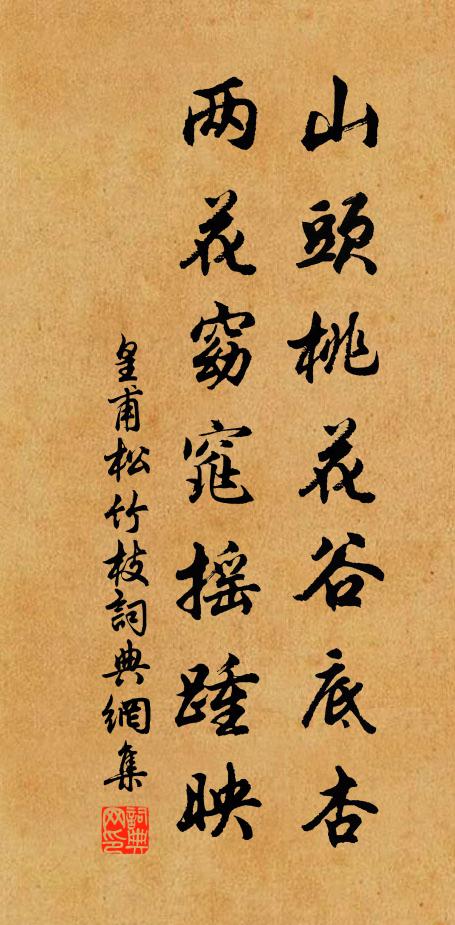 山頭桃花谷底杏
两花窈窕摇踵映
皇甫松竹枝詞典網集
詞典
网印